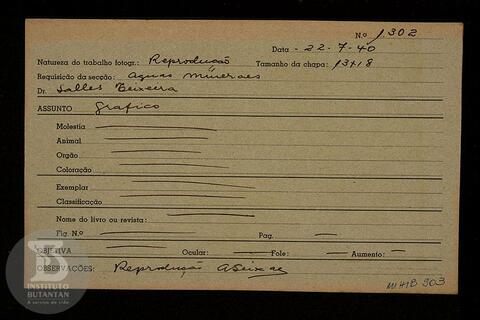 N.º 1302
Data - 22-7-40
Natureza do trabalho fotogr.: Reprodução Tamanho da chapa: 13x18
Requisição da secção: Aguas Mineraes
Dr. Salles Teixeira
ASSUNTO Grafico
Molestia
Animal
Orgão
Coloração
Exemplar
Classificação
Nome do livro ou revista:
Fig. N.º Pag.
OBJETIVA Ocular: Fole: Aumento:
OBSERVAÇÕES: Reprodução
INSTITUTO
BUTANTAN
A serviço da vida